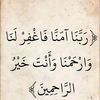 ﴿ رَبَّنَا آمَنَّا فَاغْفِرْ لَنَا
وَارْحَمْنَا وَأَنْتَ خَيْرُ
الرَّاحِمِينَ ﴾